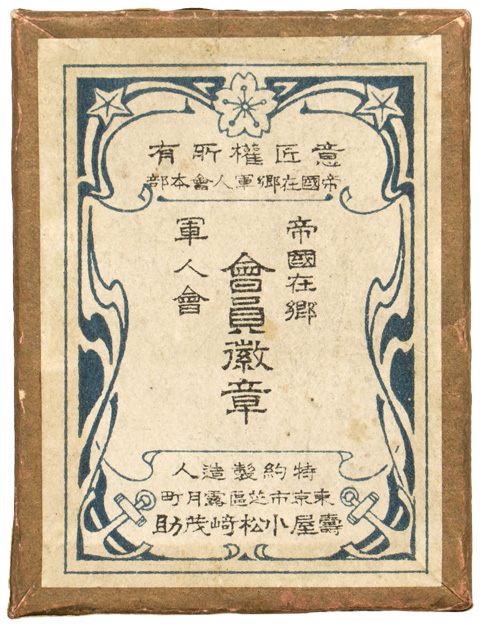 意匠權所有
帝國在鄉軍人會本部
帝國在鄉
軍人會
會員徽章
特約製造人
東京市芝區露月町
壽屋小松﨑茂助